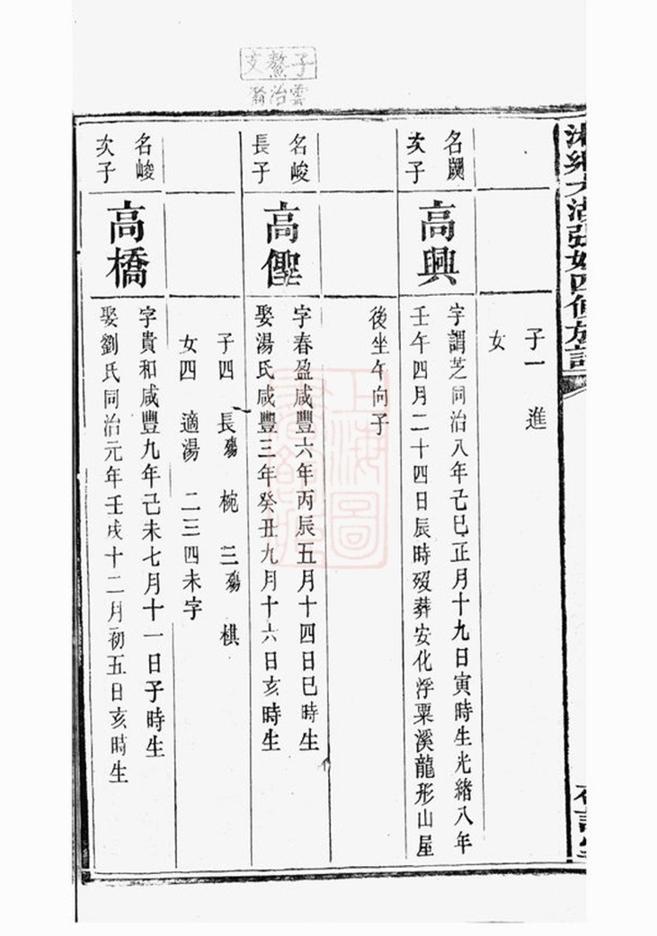 子鰲支
雲治裔
子一 進
女
名闕
次子
高興
字謂芝同治八年己巳正月十九日寅時生光緒八年
壬午四月二十四日辰時歿葬安化浮粟溪龍形山屋
後坐午向子
名峻
長子
高㷪
字春盈咸豐六年丙辰五月十四日巳時生
娶湯氏咸豐三年癸丑九月十六日亥時生
子四 長殤 椀 三殤 棋
女四 適湯 二三四未字
名峻
次子
高橋
字貴和咸豐九年己未七月十一日子時生
娶劉氏同治元年壬戌十二月初五日亥時生